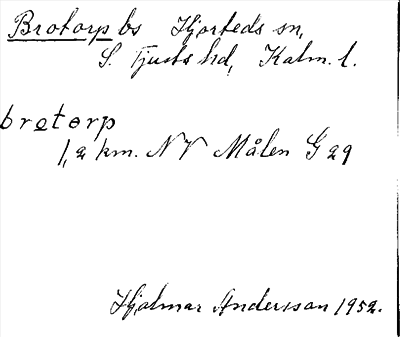 Brotorp bs Hjorteds sn,
S. Tjusts hd, Kalm. l.
brotorp
1,2 km. NV Målen G 29
Hjalmar Andersson 1952.